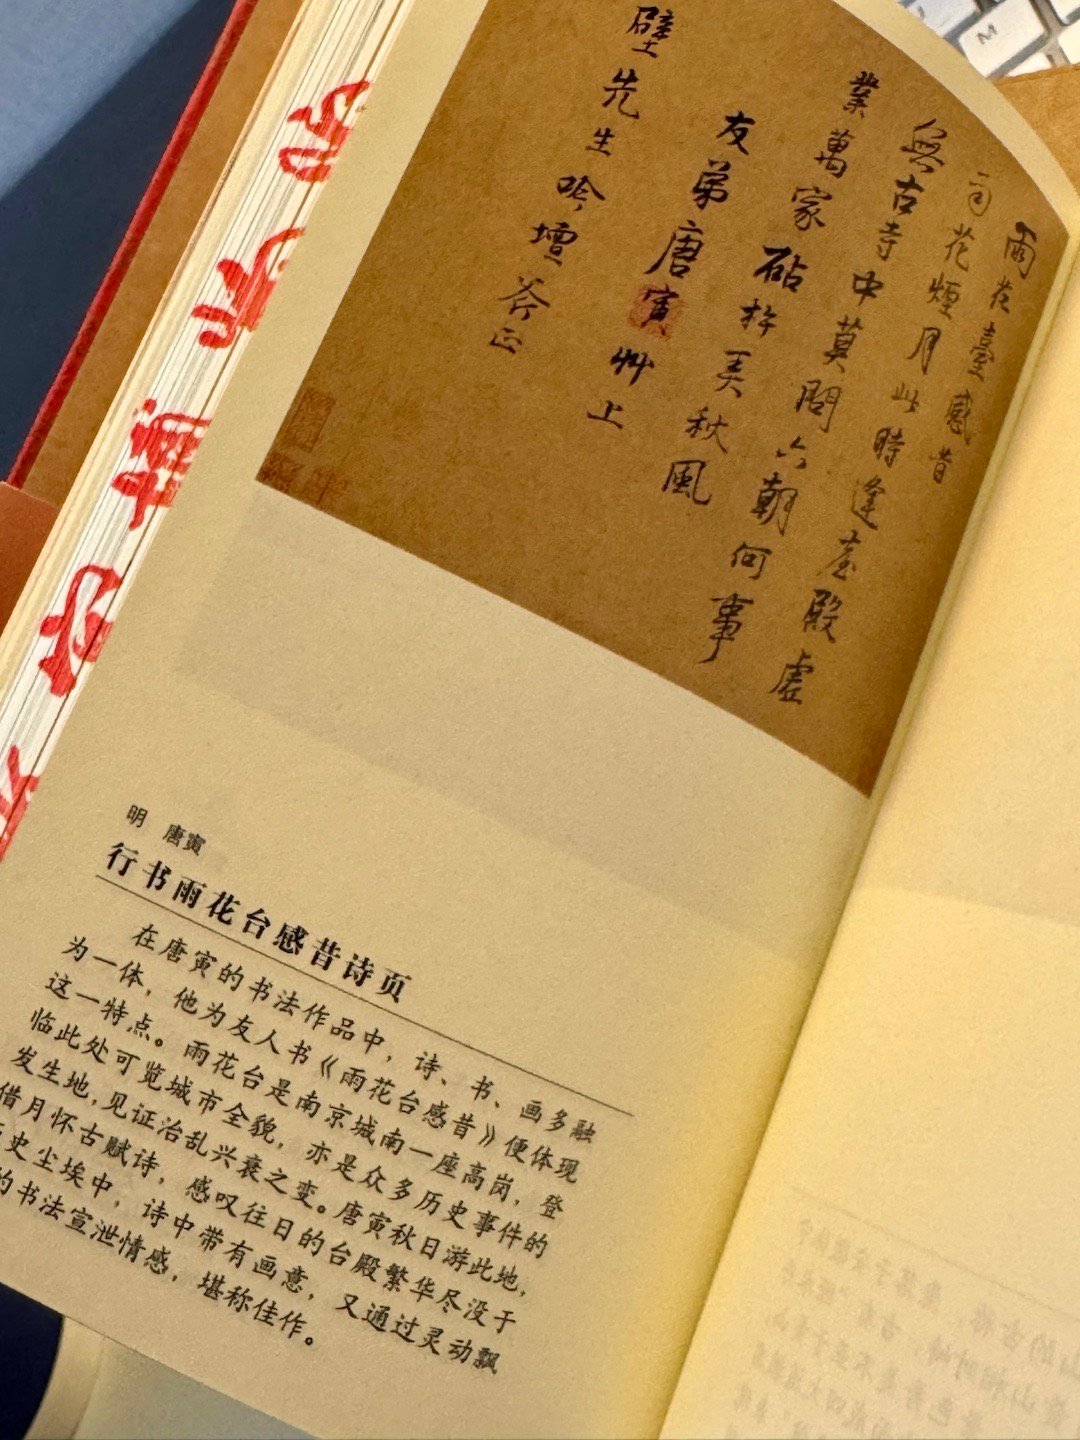 雨花臺感昔
花煙月此時逢臺殿虛
無古寺中莫問六朝何事
業萬家砧杵美秋風
友弟唐寅艸上
壁先生吟壇斧正
明 唐寅
行书雨花台感昔诗页
在唐寅的书法作品中，诗、书、画多融
为一体，他为友人书《雨花台感昔》便体现
这一特点。雨花台是南京城南一座高岗，登
临此处可览城市全貌，亦是众多历史事件的
发生地，见证治乱兴衰之变。唐寅秋日游此地，
借月怀古赋诗，感叹往日的台殿繁华尽没于
史尘埃中，诗中带有画意，又通过灵动飘
的书法宣泄情感，堪称佳作。
M